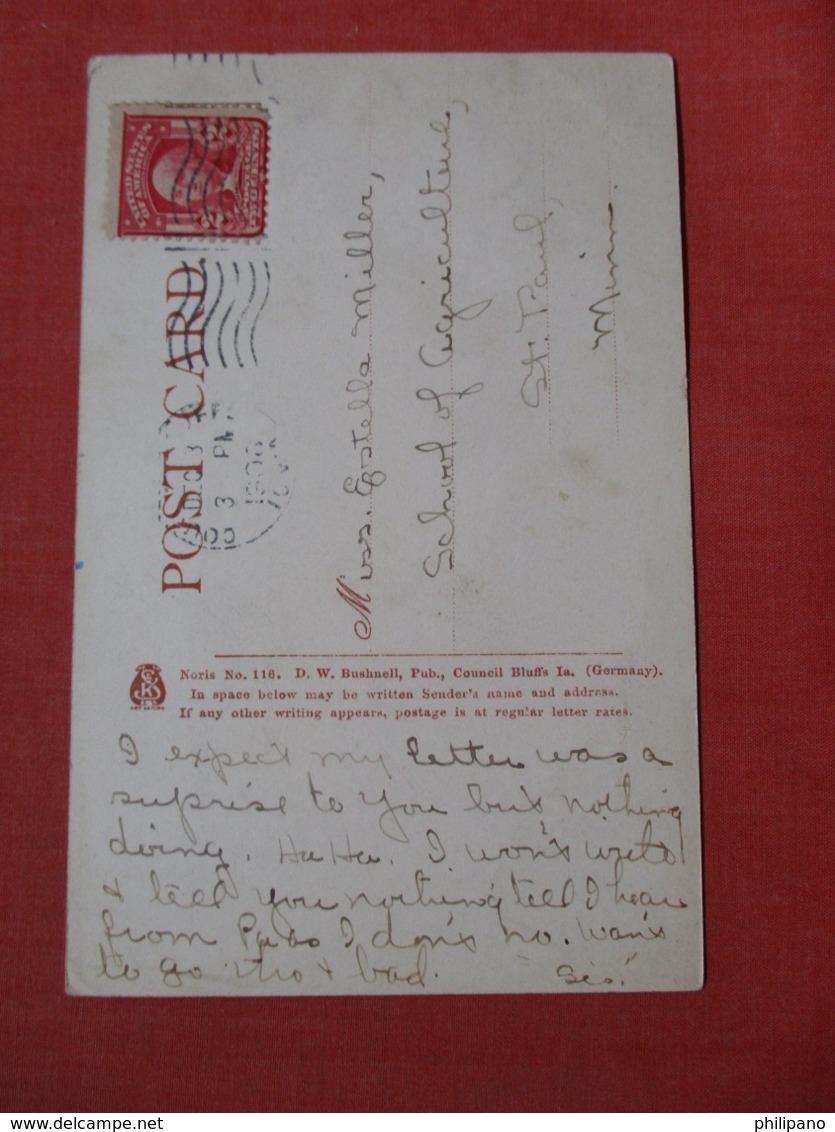 UNITED STATES
OF AMERICA
POST CARD.
3
PM
1906
Miss. Estella Miller,
School of Agriculture,
St. Paul,
Minn.
Noris No. 116. D. W. Bushnell, Pub., Council Bluffs Ia. (Germany).
In space below may be written Sender's name and address.
If any other writing appears, postage is at regular letter rates.
I expect my letter was a
suprise to you but nothing
doing. Ha Ha. I won't write
& tell you nothing till I hear
from Pa as I don't no. Want
to go tho & bad. "Sis."
philipano